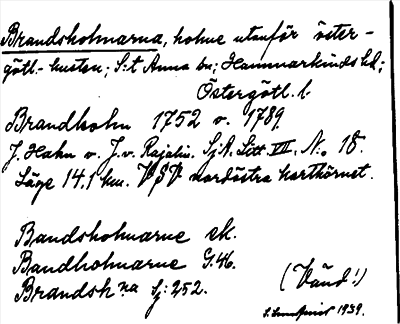 Brandsholmarna, holme utanför öster-
götl.-kusten; S:t Anna sn; Hammarkinds hd;
Östergötl. l.
Brandholm 1752 o. 1789.
J. Hahn o. J. v. Rajalin. Sj.A. Litt. VII, No 18.
Läge 14,1 km. VSV nordöstra karthörnet.
Bandsholmarne ek.
Bandholmarne G.46.
Brandsh na Sj: 252.
(Vänd!)
1939.